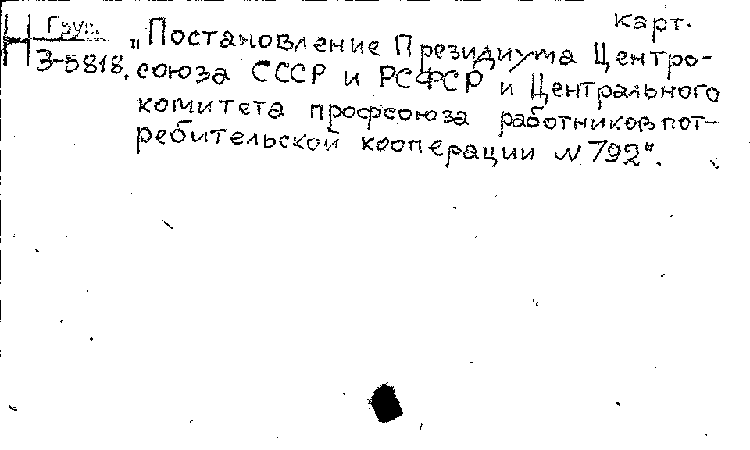 карт.
Н Груп. „Постановление Президиума Центро-
З-5818. союза СССР и РСФСР и Центрального
комитета профсоюза работников пот-
ребительской кооперации N 792“.